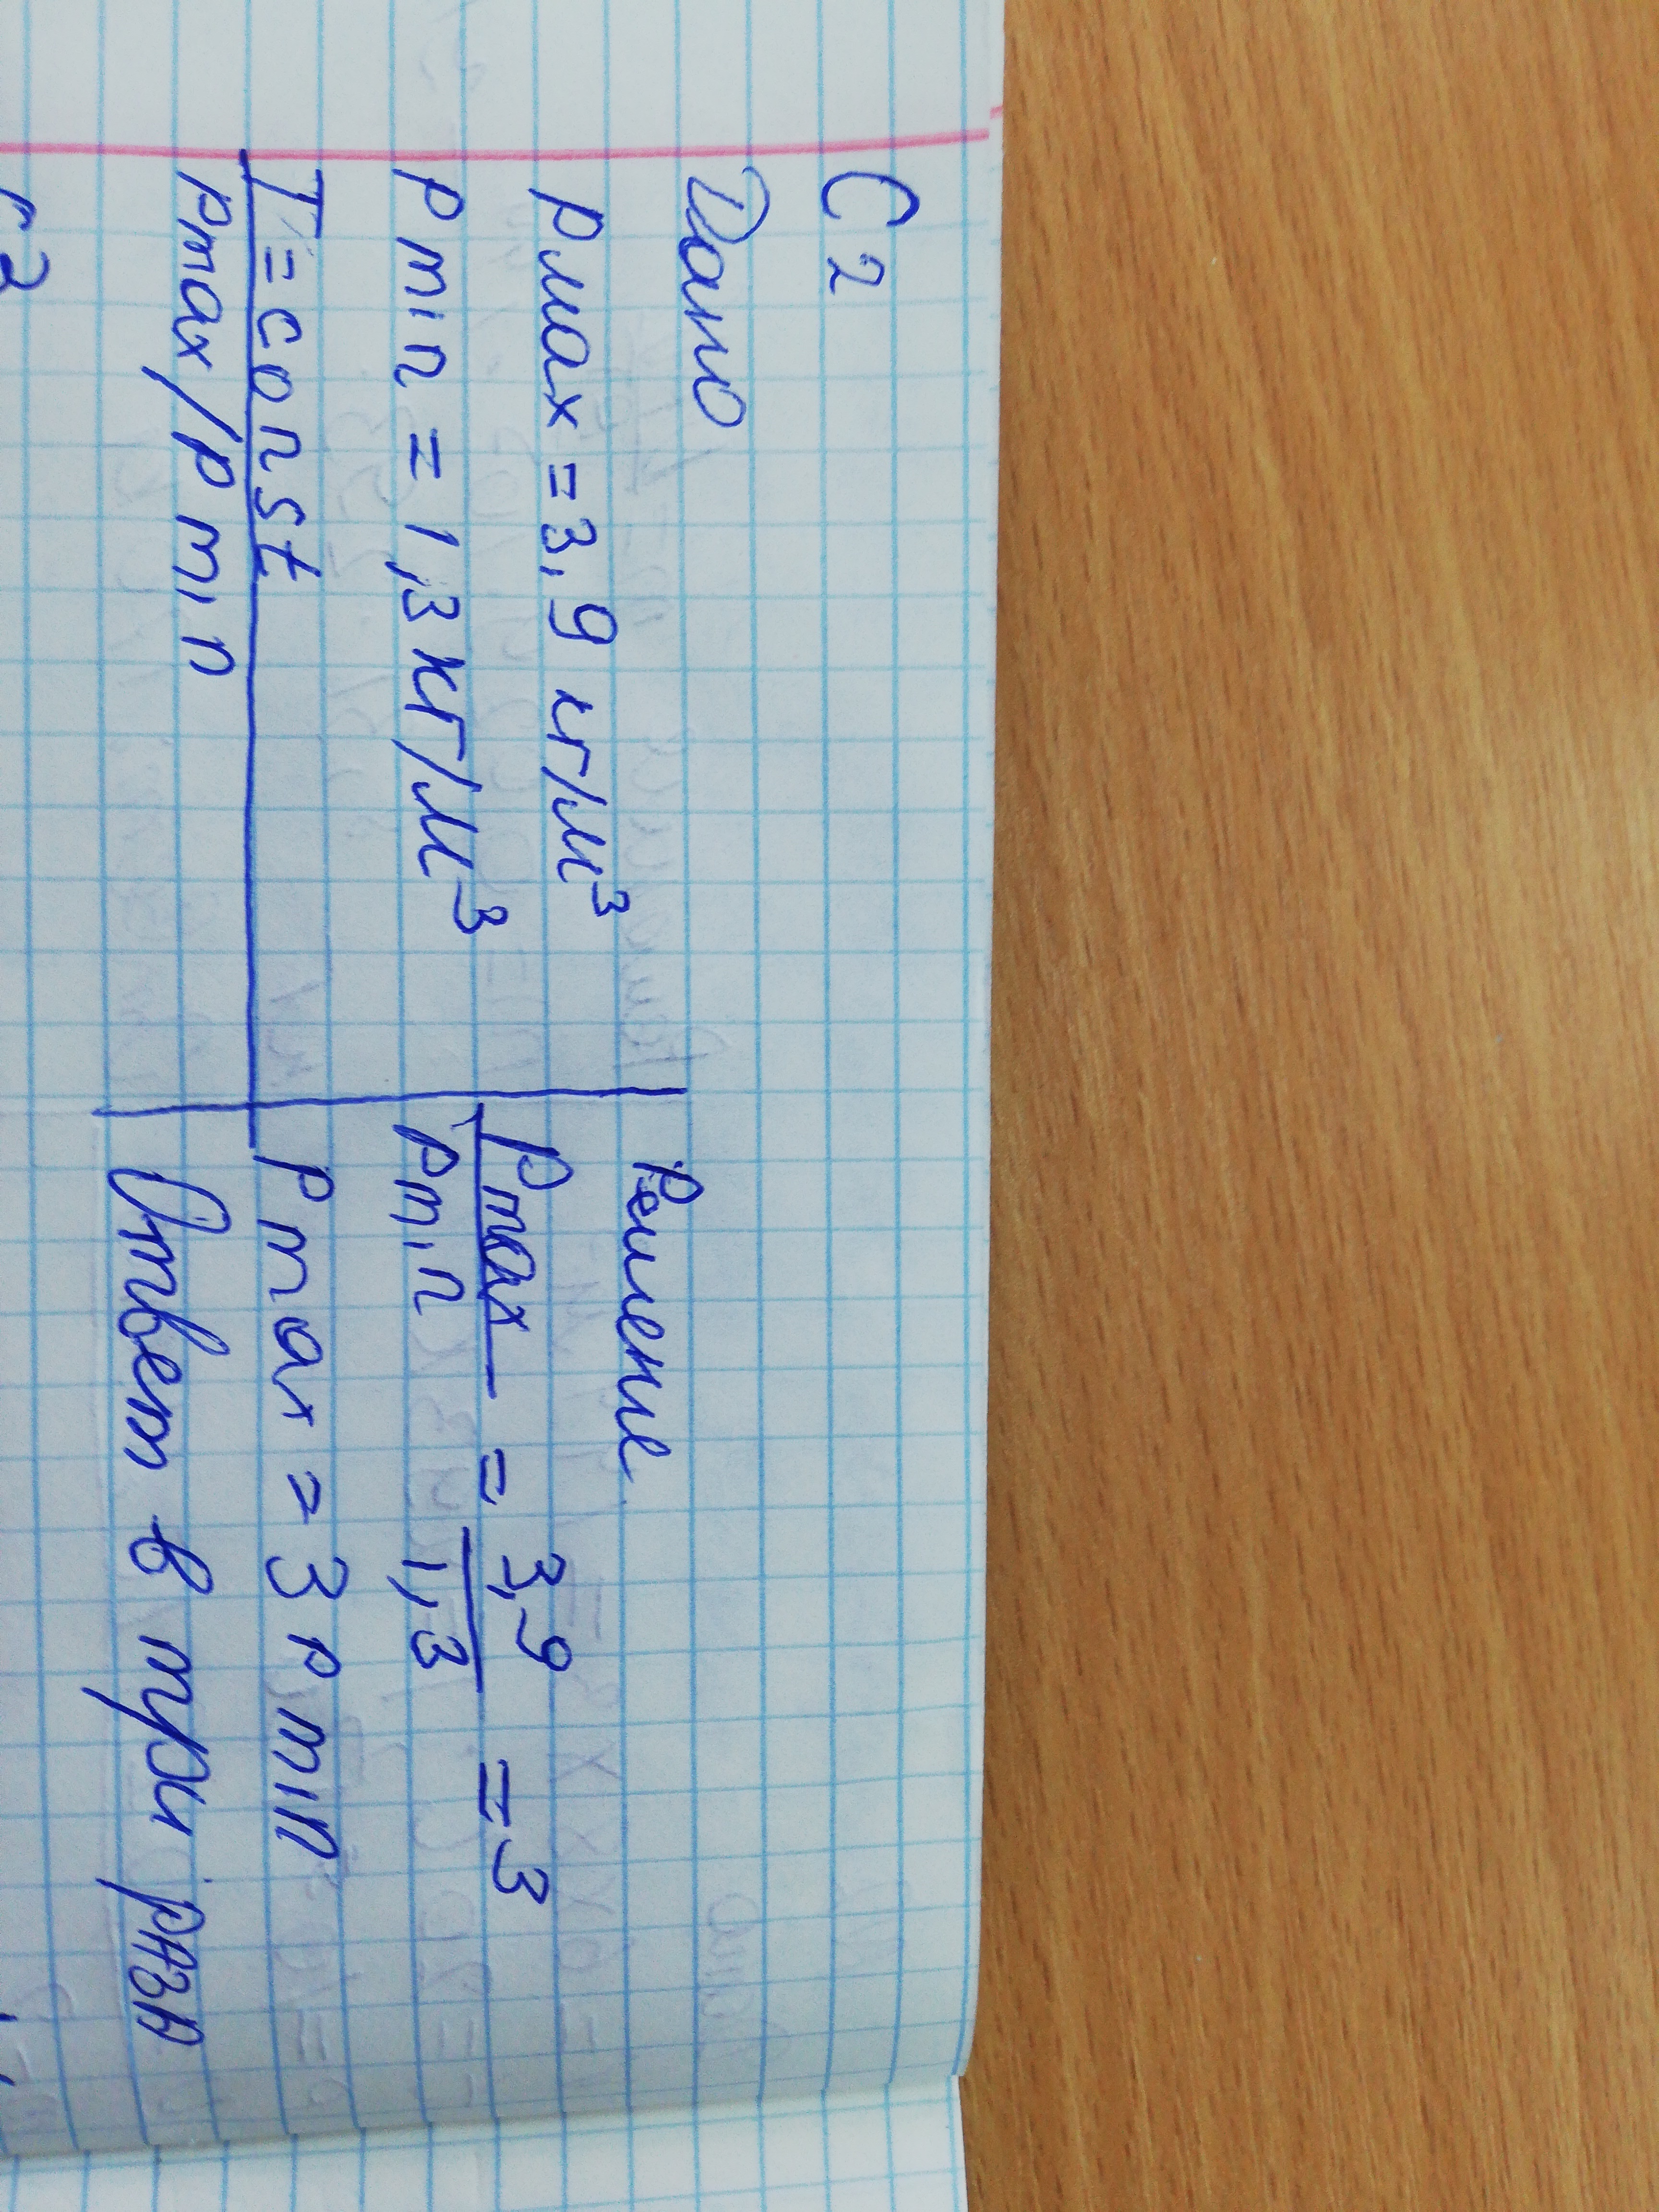 С 2
Дано
Pмах = 3,9 кг/м³
P min = 1,3 кг/м³
T = const
Pmax/P min
Решение
Pmax / Pmin = 3,9 / 1,3 = 3
P max = 3 P min
Ответ в три раза